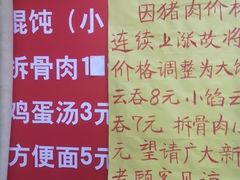 馄饨（小
拆骨肉1
鸡蛋汤3元
方便面5元
因猪肉价格
连续上涨故将
价格调整为大馅
云吞8元小馅云
吞7元 拆骨肉
元 望请广大新
老顾客见谅